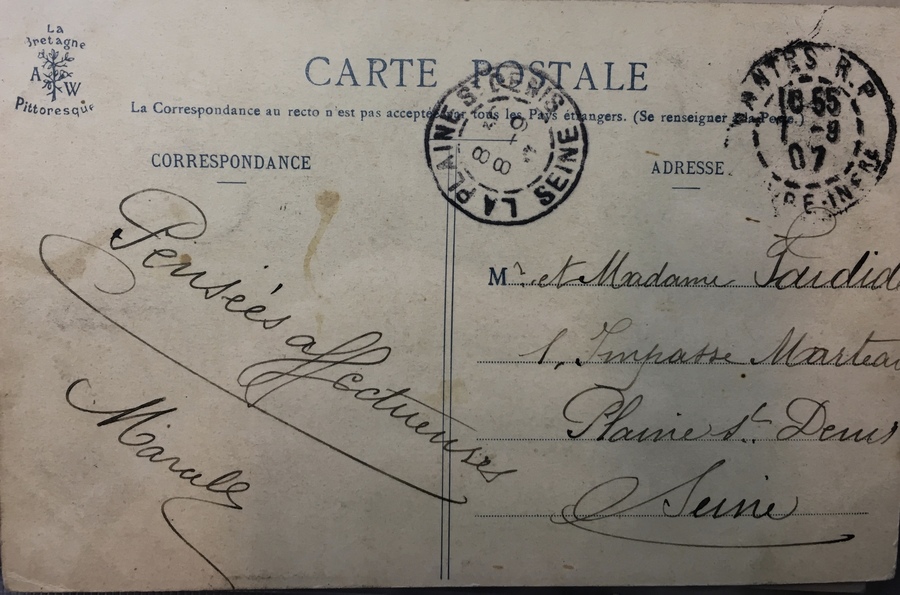 La
Bretagne
A W
Pittoresque
CARTE POSTALE
La Correspondance au recto n'est pas acceptée par tous les Pays étrangers. (Se renseigner à la Poste.)
CORRESPONDANCE
ADRESSE
LA PLAINE ST DENIS
SEINE
NANTES R.P
1 -9
07
LOIRE-INFRE
Pensées affectueuses
Mr. et Madame
1, Impasse Marteau
Plaine St. Denis
Seine